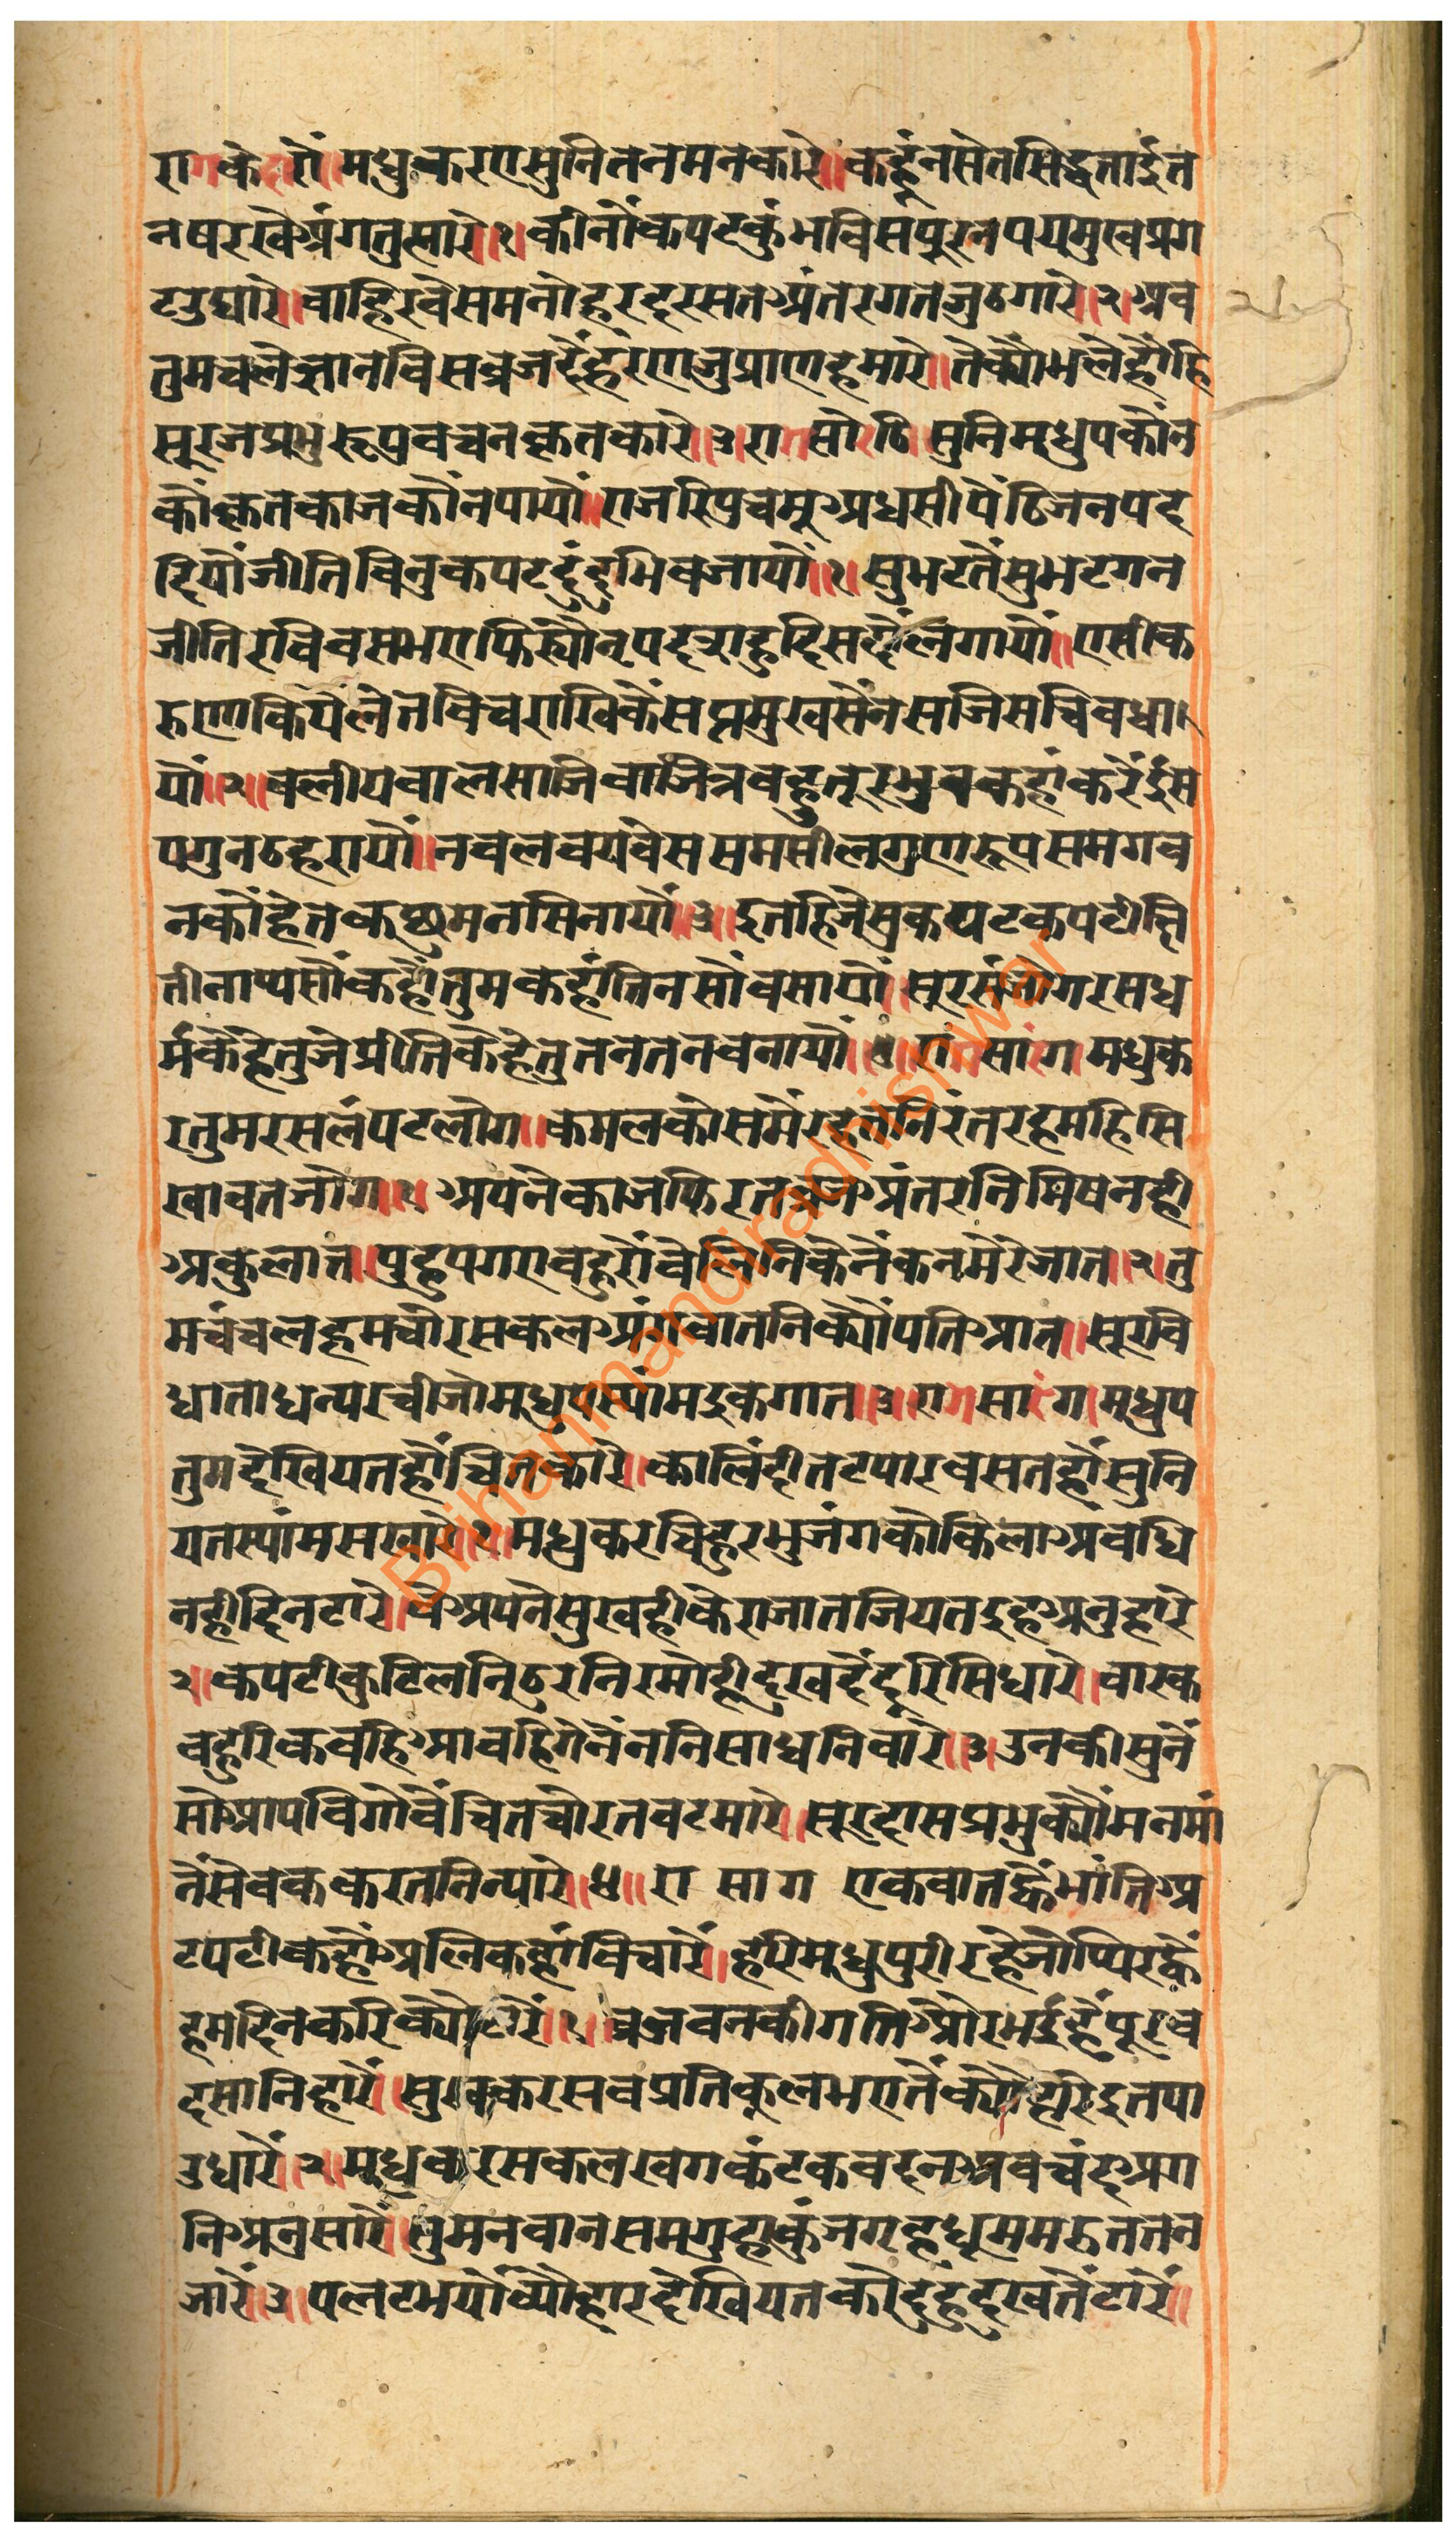 राग केदारो॥ मधुकर एसुनि तनमनकारे॥ कहूंनसेतसिद्धताईत
नषरखेअंगतुत्सारे॥१॥ कीनौंकपटकुंभविसपूरनपयमुखप्रग
टउघारे॥ वाहिरवेसमनोहरदरसतअंतरगतजुठगारे॥२॥ अब
तुमचलेज्ञानविसव्रजदैंहरणजुप्राणहमारे॥ तेक्यौंभलेहौंहि
सूरजप्रभुरूपवचनकृतकारे॥३॥ राग सोरठि॥ सुनिमधुपकौंन
कौंकृतकाजकौंनपायौ॥ राजरिपुचमूअधसीपेंठिजनपद
दियौंजीतिविनुकपटदुंदुभिवजायौं॥१॥ सुभटतैंसुभटगन
जीतिरविवसभएफिख्यौनृपदत्राहुदिसदौंलगायौं॥ एसीक
रुणाकियैंलेतविचराखिकैंसत्रमुखसेंनसजिसचिवधा
यौं॥२॥ बलीयवालसाजिवाजित्रबहुतूरभ्रुवकहांकरेंइंस
पगुनठहरायौं॥ नवलवयवेससमसीलगुणरूपसमगव
नकौंहेतकृष्णमनसिनायौं॥३॥ इतहिजेसुकघटकपटीत्ति
तीनाप्यसौंकहौंतुमकहांतिनसौंवसायौ॥ सूरसंजोगरसध
र्मकेंहेतुजेप्रीतिकेहेतुतनतनवनायौं॥४॥ राग सारंग॥ मधुक
रतुमरसलंपटलोग॥ कमलकोसमेंरहतनिरंतरहमहिसि
खावतजोग॥१॥ अपनेकाजफिरतव्रजअंतरनिमिषनही
अकुलात॥ पुहुपगएवहुरोंवेलिनिकेनेंकनमेरेजात॥२॥ तु
मचंचलहमचोरसकलअंगवातनिक्यौंपतिआत॥ सूरवि
धाताधन्यरचीजोमधुपस्यांमइकगात॥३॥ राग सारंग॥ मधुप
तुमदेखियतहौंचितकारे॥ कालिंदीतटपारवसतहौंसुनि
यतस्यांमसखारे॥१॥ मधुकरचिहुरभुजंगकोकिलाअवधि
नहीदिनटारे॥ वेअपनेसुखहीकेराजातजियतइहअनुहारे
२॥ कपटीकुटिलनिठुरनिरमोहीदुखदैंदूरिसिधारे॥ वारक
वहुरिकवहिआवहिगेनेंननिसाधनिवारे॥३॥ उनकीसुनें
सोआपविगोवेंचितचोरतवटमारे॥ सूरदासप्रभुक्यौंमनमां
नेंसेवककरतनिन्यारे॥४॥ रा सा ग एकवातद्वैंभांतिअ
टपटीकहौंअलिकहांविचारें॥ हरिमधुपुरीरहेजोप्पिरकें
हमहिनकरिक्योंटारें॥१॥ व्रजवनकीगतिऔरभईहैंपूरव
दसानिहारें॥ सुखकरसवप्रतिकुलभएतेंक्यौंहरिइतपा
उधारें॥२॥ मधुकरसकलखगकंटकवदनअवचंदअग
निअनुसारें॥ तुमनवानसमगुहाकुंजगृहधूममरुततन
जारें॥३॥ पलटभयोव्यौहारदेखियतकोदुहुदुखतेंटारें॥